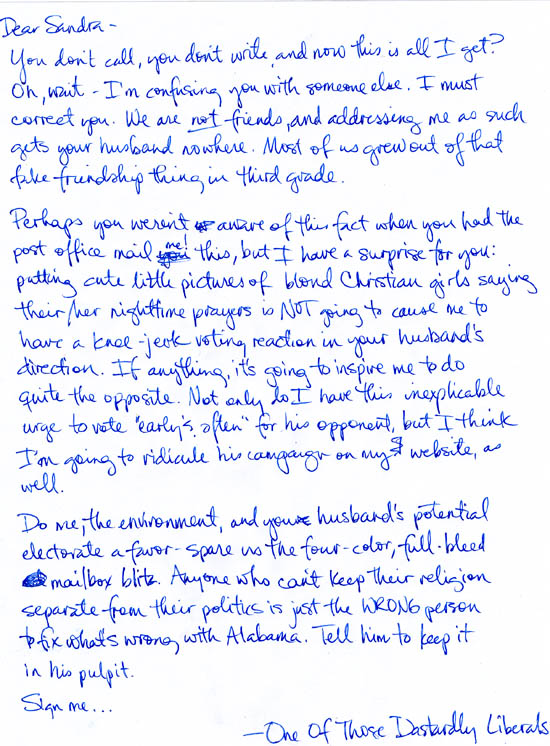 Dear Sandra -
You don't call, you don't write, and now this is all I get?
Oh, wait - I'm confusing you with someone else. I must
correct you. We are not friends, and addressing me as such
gets your husband nowhere. Most of us grew out of that
fake friendship thing in third grade.
Perhaps you weren't aware of this fact when you had the
post office mail me! this, but I have a surprise for you:
putting cute little pictures of blond Christian girls saying
their/her nighttime prayers is NOT going to cause me to
have a knee-jerk voting reaction in your husband's
direction. If anything, it's going to inspire me to do
quite the opposite. Not only do I have this inexplicable
urge to vote "early & often" for his opponent, but I think
I'm going to ridicule his campaign on my website, as
well.
Do me, the environment, and your husband's potential
electorate a favor - spare us the four-color, full-bleed
mailbox blitz. Anyone who can't keep their religion
separate from their politics is just the WRONG person
to fix what's wrong with Alabama. Tell him to keep it
in his pulpit.
Sign me...
- One Of Those Dastardly Liberals